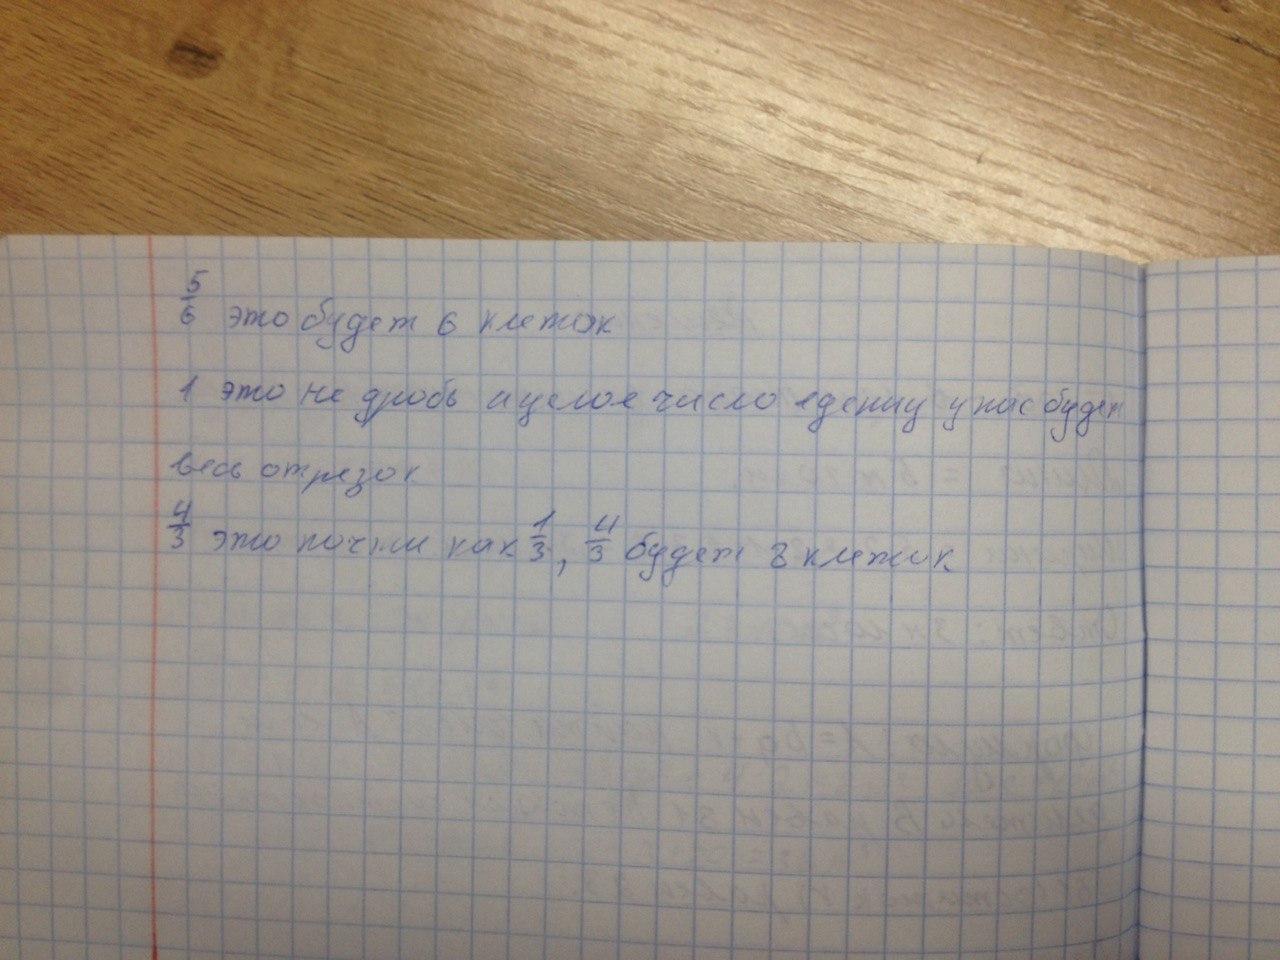 5/6 это будет 6 клеток
1 это не дробь а целое число еденицу у нас будет
весь отрезок
4/3 это почти как 1/3, 4/3 будет 8 клеток